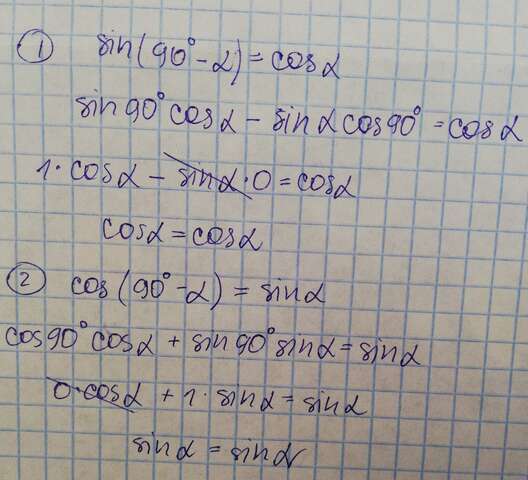 ① sin(90°-α)=cosα
sin90°cosα - sinαcos90° = cosα
1·cosα - sinα·0 = cosα
cosα = cosα
② cos(90°-α) = sinα
cos90°cosα + sin90°sinα = sinα
0·cosα + 1·sinα = sinα
sinα = sinα